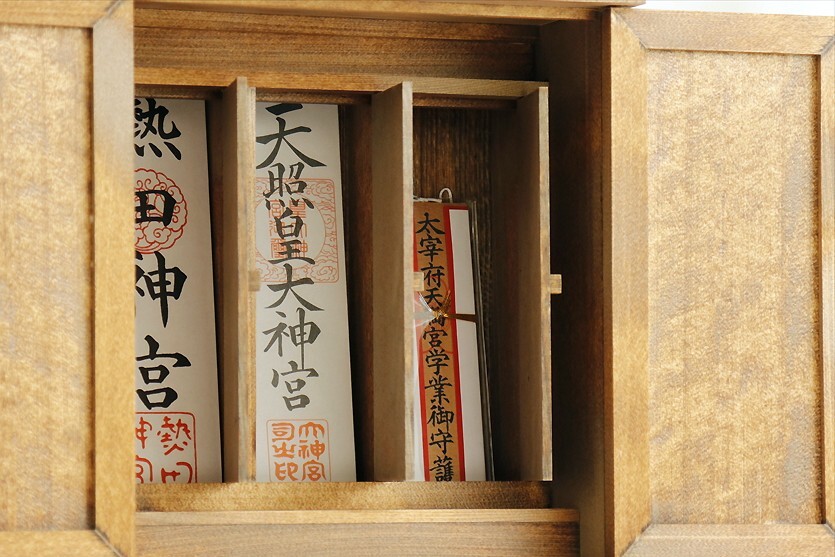 熱田神宮
熱田
神宮
天照皇大神宮
大神宮
司之印
太宰府天満宮学業御守護